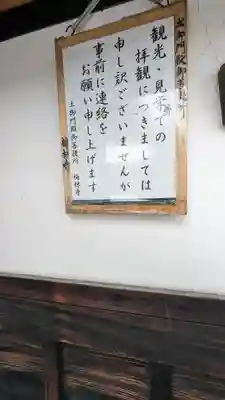 観光・見学での
拝観につきましては
申し訳ございませんが
事前に連絡を
お願い申し上げます
土御門殿御菩提所 梅林寺